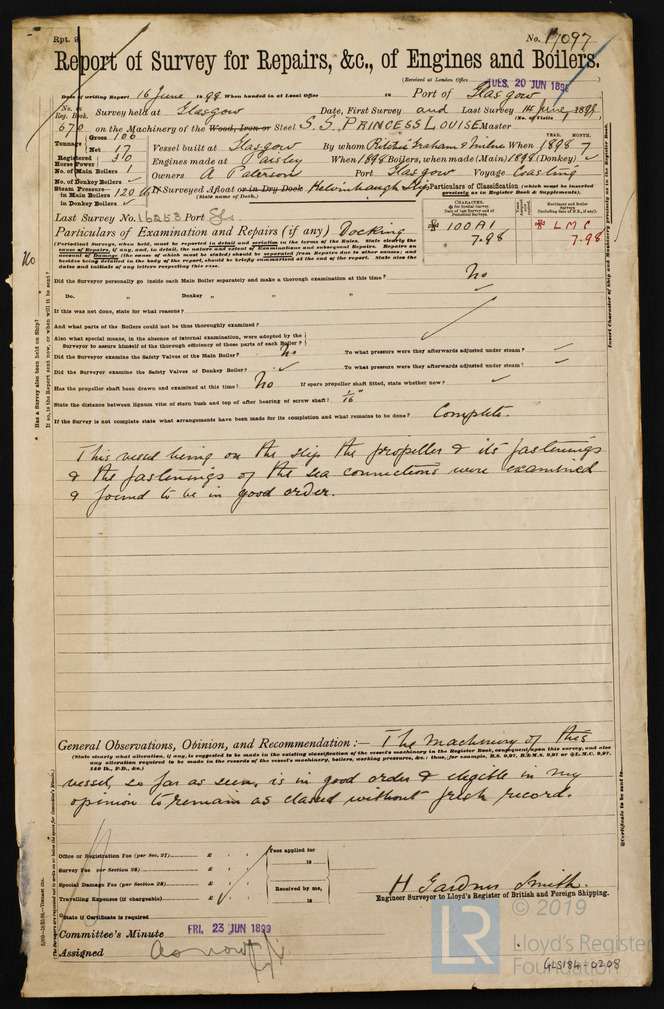 Rpt. 9.
No. 17097
Report of Survey for Repairs, &c., of Engines and Boilers.
(Received at London Office TUES. 20 JUN 1899
Date of writing Report 16 June 1899 When handed in at Local Office 18 Port of Glasgow
No. in Reg. Book. Survey held at Glasgow Date, First Survey and Last Survey 14 June, 1899
(No. of Visits 1
670 on the Machinery of the Wood, Iron or Steel S.S. PRINCESS LOUISE Master
Tonnage Gross 106 Net 17
Vessel built at Glasgow By whom Ritchie Graham & Milne When 1898 7
YEAR. MONTH.
Registered Horse Power 30
Engines made at Paisley When 1898 Boilers, when made (Main) 1898 (Donkey)
No. of Main Boilers 1
Owners A Paterson Port Glasgow Voyage Coasting
No. of Donkey Boilers
Steam Pressure in Main Boilers 120 lbs
in Donkey Boilers
If Surveyed Afloat or in Dry Dock Kelvinhaugh Slip
(State name of Dock.)
Particulars of Classification (which must be inserted precisely as in Register Book & Supplements).
Last Survey No. 16253 Port Gls.
CHARACTER.
for Special Survey.
Date of Last Survey and of Periodical Surveys.
Machinery and Boiler Surveys
(Including date of N.B., if any).
100 A1
7.98
L M C
7.98
Particulars of Examination and Repairs (if any) Docking
(Periodical Surveys, when held, must be reported in detail and seriatim in the terms of the Rules. State clearly the
cause of Repairs, if any, and, in detail, the nature and extent of Examinations and subsequent Repairs. Repairs on
account of Damage (the cause of which must be stated) should be separated from Repairs due to other causes; and
besides being detailed in the body of the report, should be briefly summarised at the end of the report. State also the
dates and initials of any letters respecting this case.
Did the Surveyor personally go inside each Main Boiler separately and make a thorough examination at this time? No
Do. " Donkey " " "
If this was not done, state for what reasons?
And what parts of the Boilers could not be thus thoroughly examined?
Also what special means, in the absence of internal examination, were adopted by the
Surveyor to assure himself of the thorough efficiency of those parts of each Boiler?
Did the Surveyor examine the Safety Valves of the Main Boiler? No To what pressure were they afterwards adjusted under steam?
Did the Surveyor examine the Safety Valves of Donkey Boiler? To what pressure were they afterwards adjusted under steam?
Has the propeller shaft been drawn and examined at this time? No If spare propeller shaft fitted, state whether new?
State the distance between lignum vitæ of stern bush and top of after bearing of screw shaft? 1/16"
If the Survey is not complete state what arrangements have been made for its completion and what remains to be done? Complete.
No
Has a Survey also been held on Ship?
If so, is the Report sent now, or when will it be sent?
Insert Character of Ship and Machinery precisely as in the Register Book.
This vessel being on the slip the propeller & its fastenings
& the fastenings of the sea connections were examined
& found to be in good order.
General Observations, Opinion, and Recommendation:— The machinery of this
(State clearly what alteration, if any, is suggested to be made in the existing classification of the vessel's machinery in the Register Book, consequent upon this survey, and also
any alteration required to be made in the records of the vessel's machinery, boilers, working pressures, &c.: thus, for example, B.S. 9,97, B.&M.S. 9,97 or L.M.C. 9,97,
140 lb., F.D., &c.)
vessel, so far as seen, is in good order & eligible in my
opinion to remain as classed without fresh record.
Office or Registration Fee (per Sec. 27) £ : :
Survey Fee (per Section 28) £ : :
Special Damage Fee (per Section 28) £ : :
Travelling Expenses (if chargeable) £ : :
Fees applied for
18
Received by me,
18
H Gardner Smith.
Engineer Surveyor to Lloyd's Register of British and Foreign Shipping.
State if Certificate is required
Committee's Minute FRI. 23 JUN 1899
Assigned As now
Certificate to be sent to
LR
© 2019
Lloyd's Register
Foundation
GLS184-0208